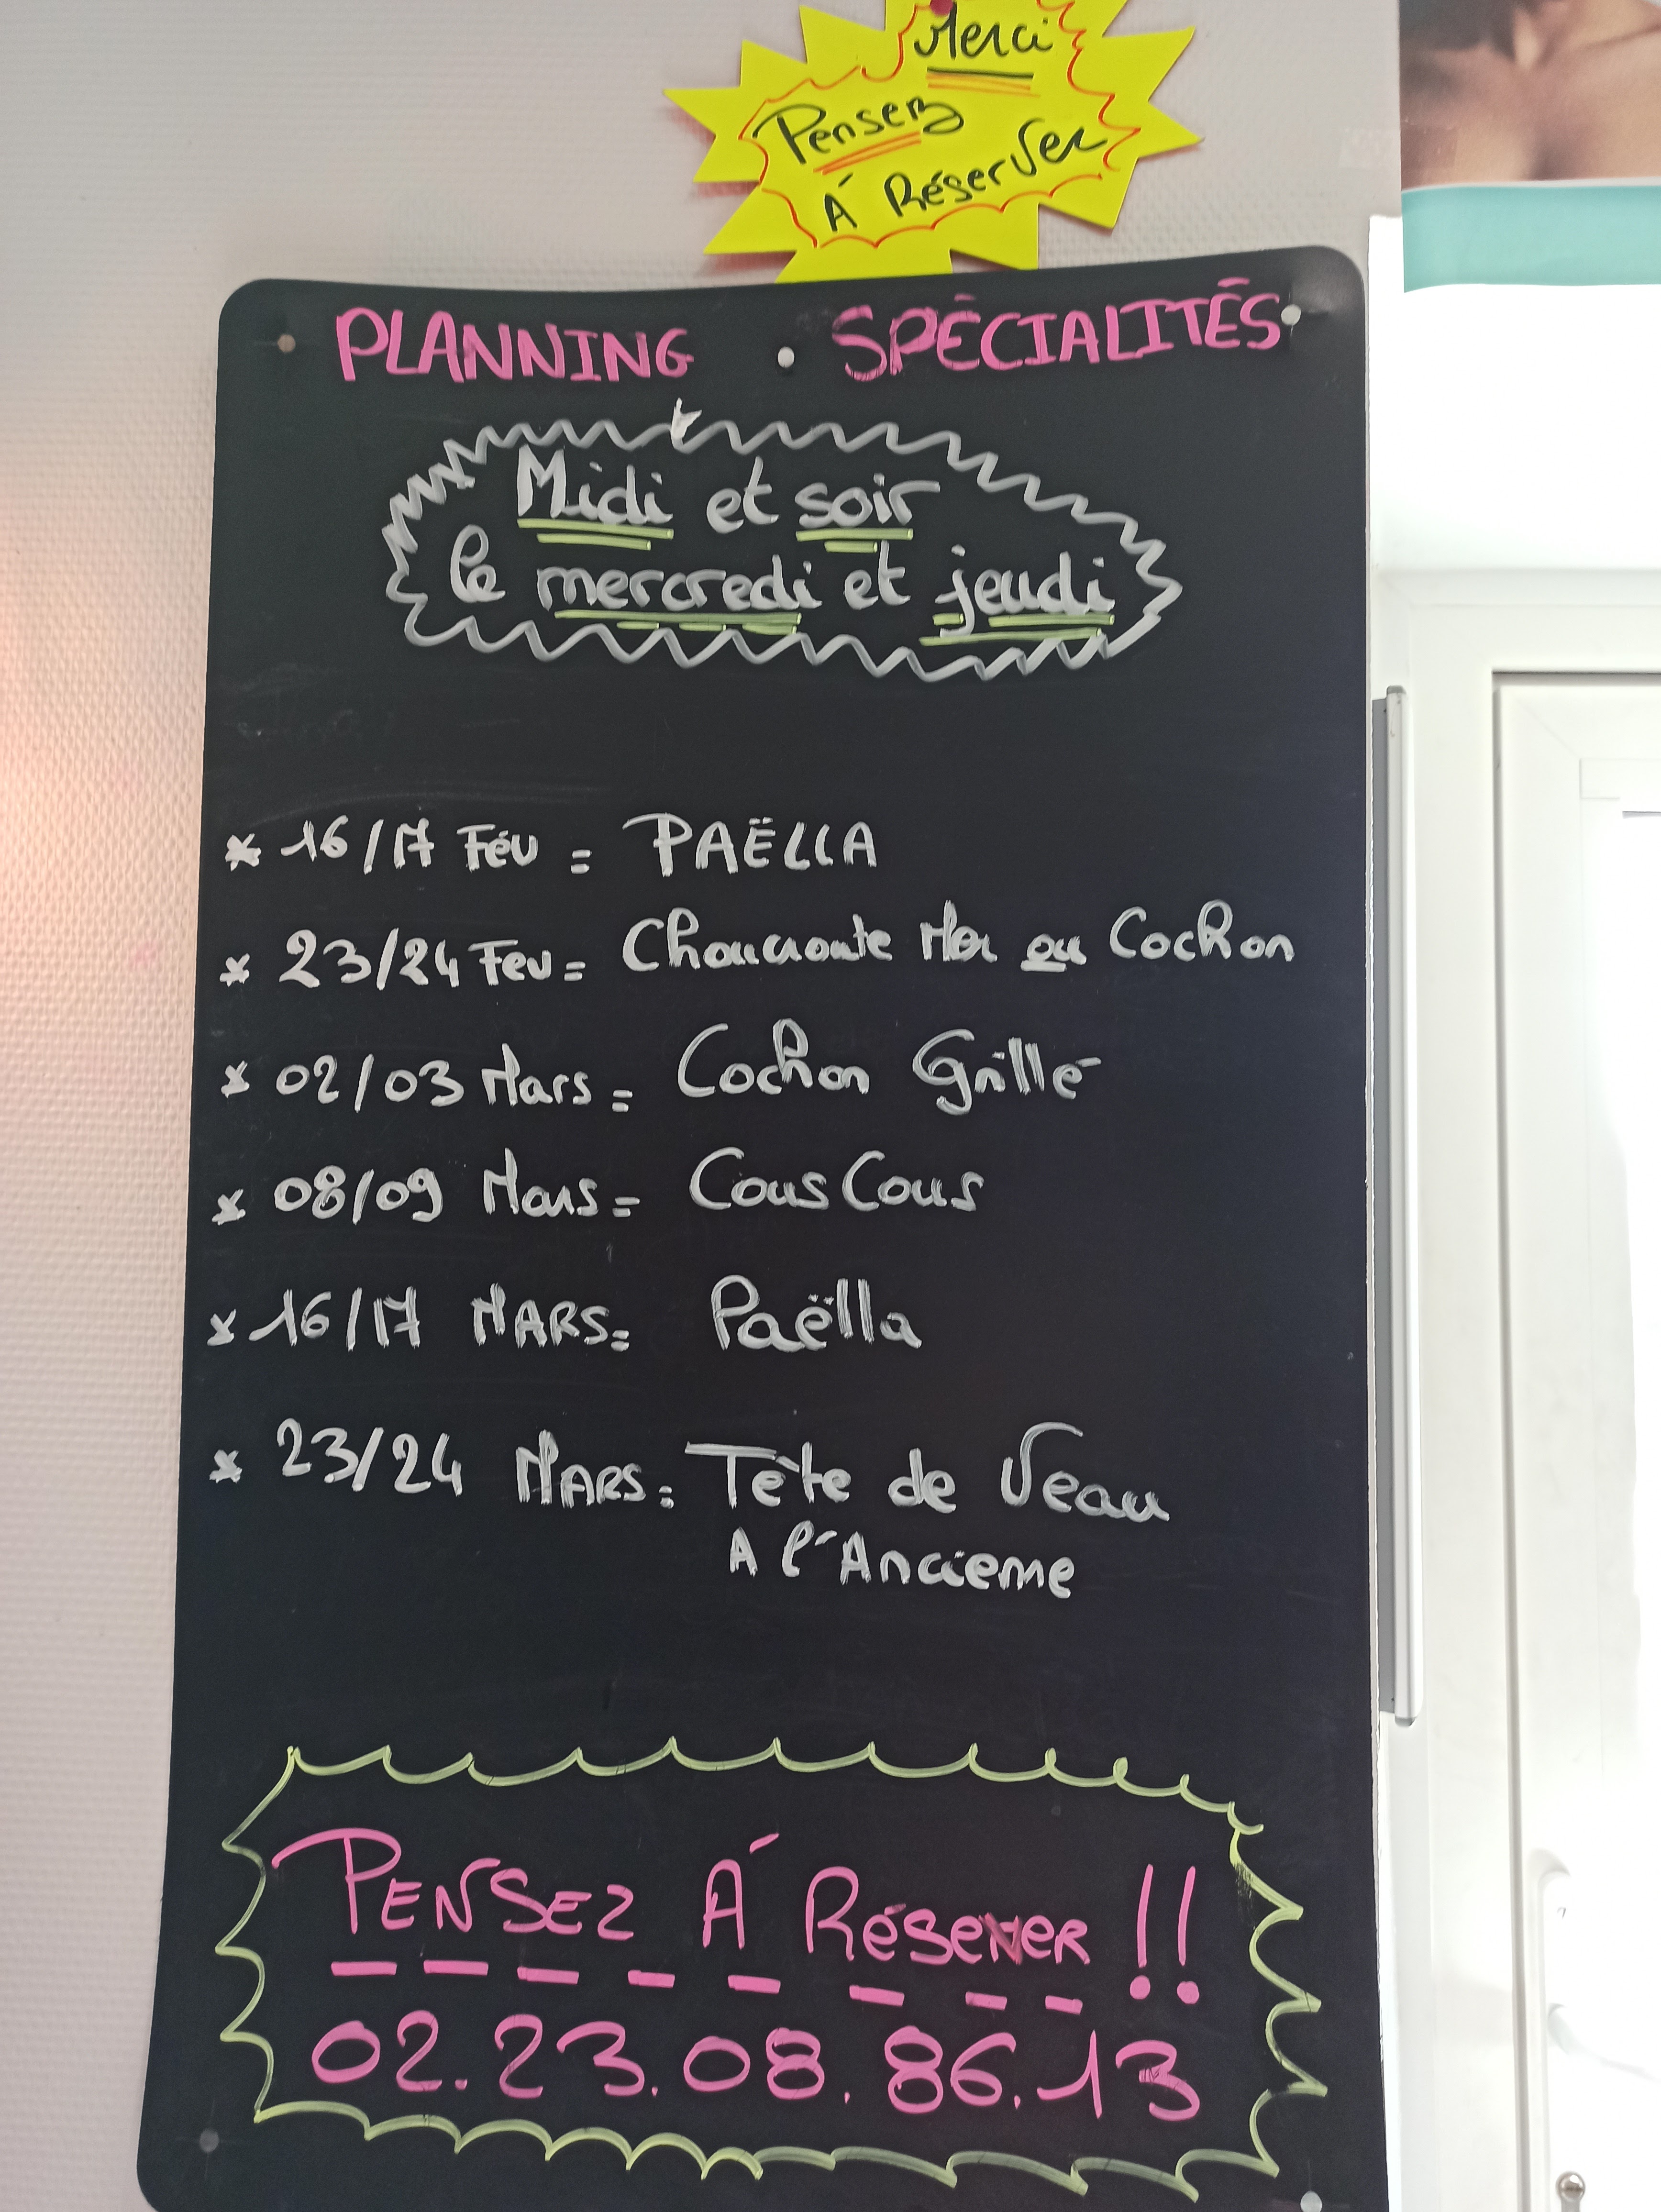 Merci
Pensez
À Réserver
PLANNING SPÉCIALITÉS
Midi et soir
le mercredi et jeudi
* 16/17 Fév = PAËLLA
* 23/24 Fev = Choucroute Mer ou Cochon
* 02/03 Mars = Cochon Grillé
* 08/09 Mars = CousCous
* 16/17 MARS = Paëlla
* 23/24 MARS = Tête de Veau
A l'Ancienne
PENSEZ À RÉSERVER !!
02.23.08.86.13